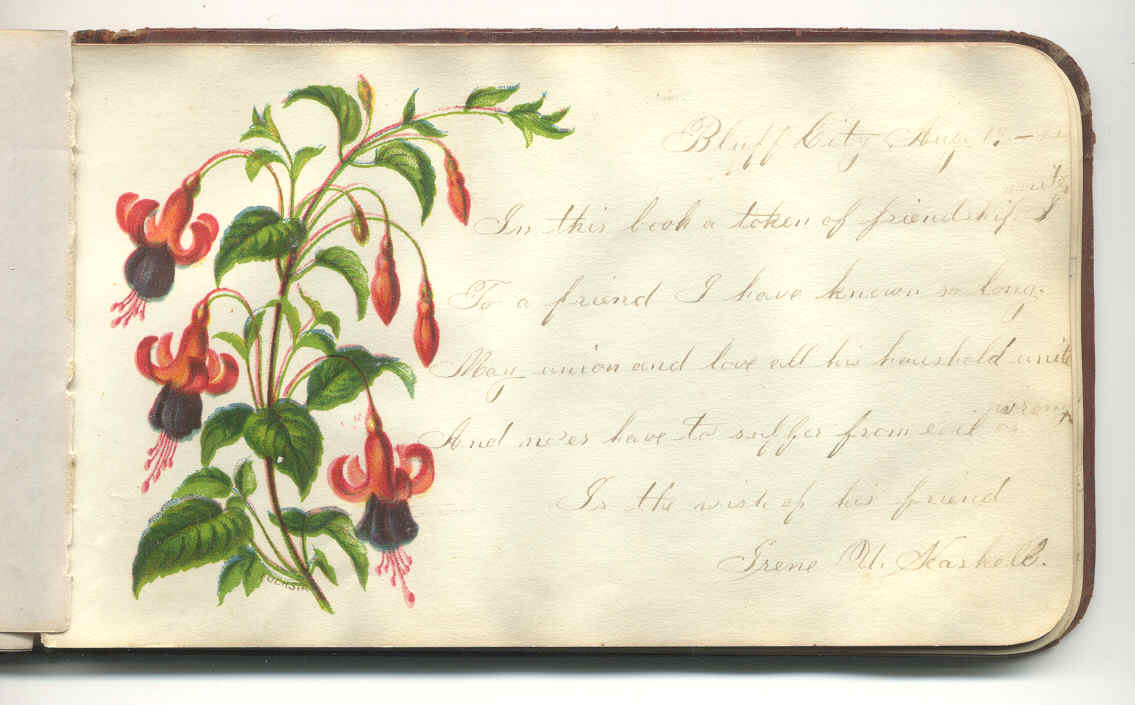 Bluff City, Aug. 15.-
In this book a token of friendship I
write
To a friend I have known so long.
May union and love all his household unite
And ne'er have to suffer from evil or
wrong
Is the wish of his friend
Irene
FUCHSIA